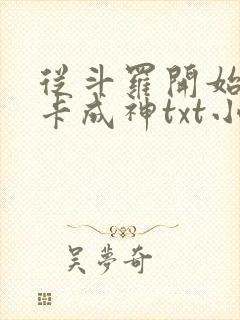 從斗羅開始
卡成神txt小
吴夢奇